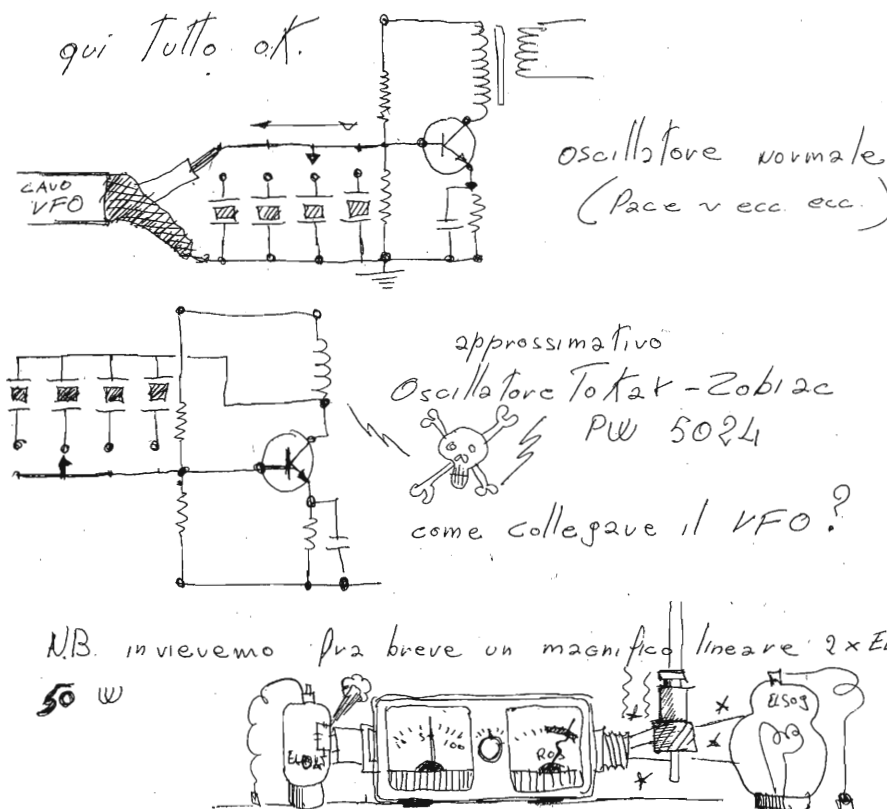 qui tutto o.K.
CAVO
VFO
Oscillatore normale
(Pace e ecc. ecc.)
approssimativo
Oscillatore Tokai - Zodiac
PW 5024
come collegare il VFO?
N.B. invieremo fra breve un magnifico lineare 2 x EL
50 W
100
ROS
EL509